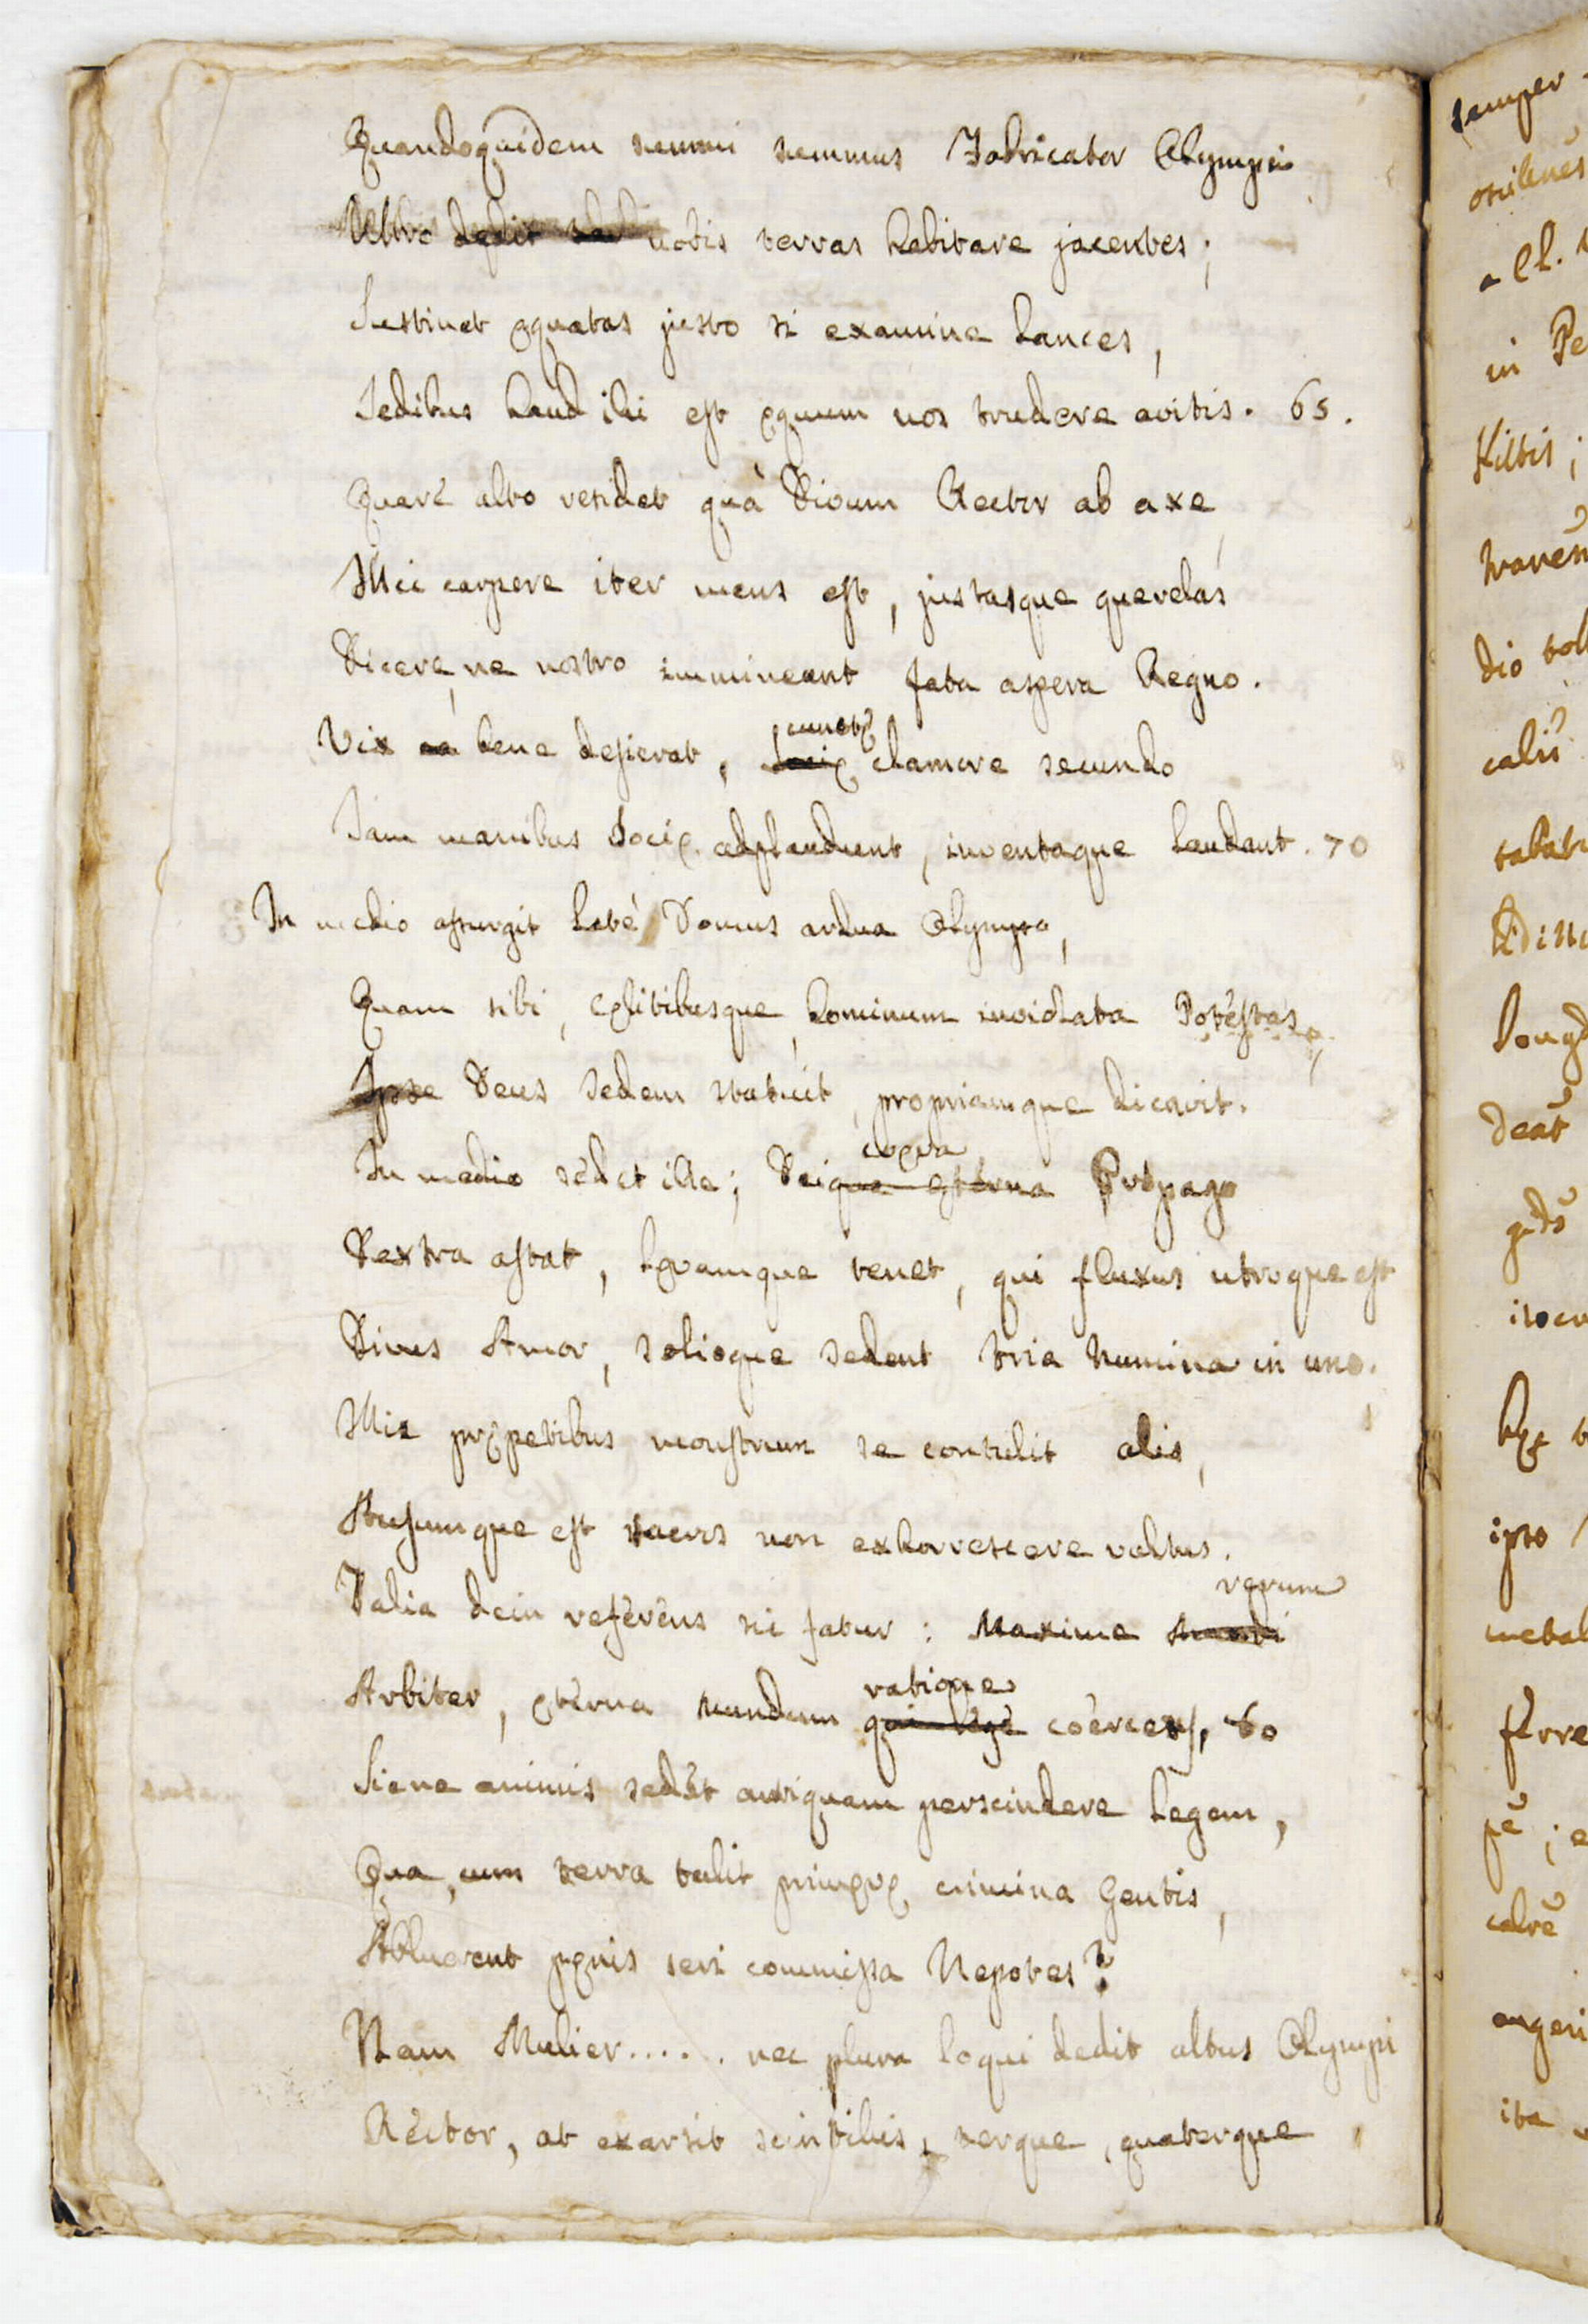 Quandoquidem summi summus Fabricator Olympi
Ultro dedit nobis terras habitare jacentes;
Sustinet ęquatas justo si examine lances,
Sedibus haud illi est ęquum nos trudere avitis. 65.
Quare alto residet quà Divum Rector ab axe,
Mii carpere iter mens est, justasque querelas
Dicere, ne nostro immineant fata aspera Regno.
cunctę
Vix ea bene desierat, socię clamore secundo
Jam manibus Socię adplaudunt, inventaque laudant. 70
In medio assurgit latè Domus ardua Olympo,
Quam sibi, Cęlitibusque, hominum inviolata Potestas,
Ipse Deus sedem statuit, propriamque dicavit.
coęva
In medio sedet ille; Deique ęterna Propago
Dextra astat, lęvamque tenet, qui fluxus utroque est
Divus Amor, solioque sedent tria Numina in uno.
Huc prępetibus monstrum se contulit alis,
Ausumque est sacros non exhorrescere vultus.
rerum
Talia dein referens sic fatur: Maxime Mundi
ratione
Arbiter, ęterna mundum qui lege coërces, 80
Siene animis sedet antiquam perscindere legem,
Qua, cum terra tulit primęvę crimina Gentis,
Abluerent pęnis seri commissa Nepotes?
Nam Mulier..... nec plura loqui dedit altus Olympi
Rector, at exarsit scintillis, terque, quaterque
semper
a Cl.
in Pe
Kiltis;
dio
ipso
ferre
angeri
ita